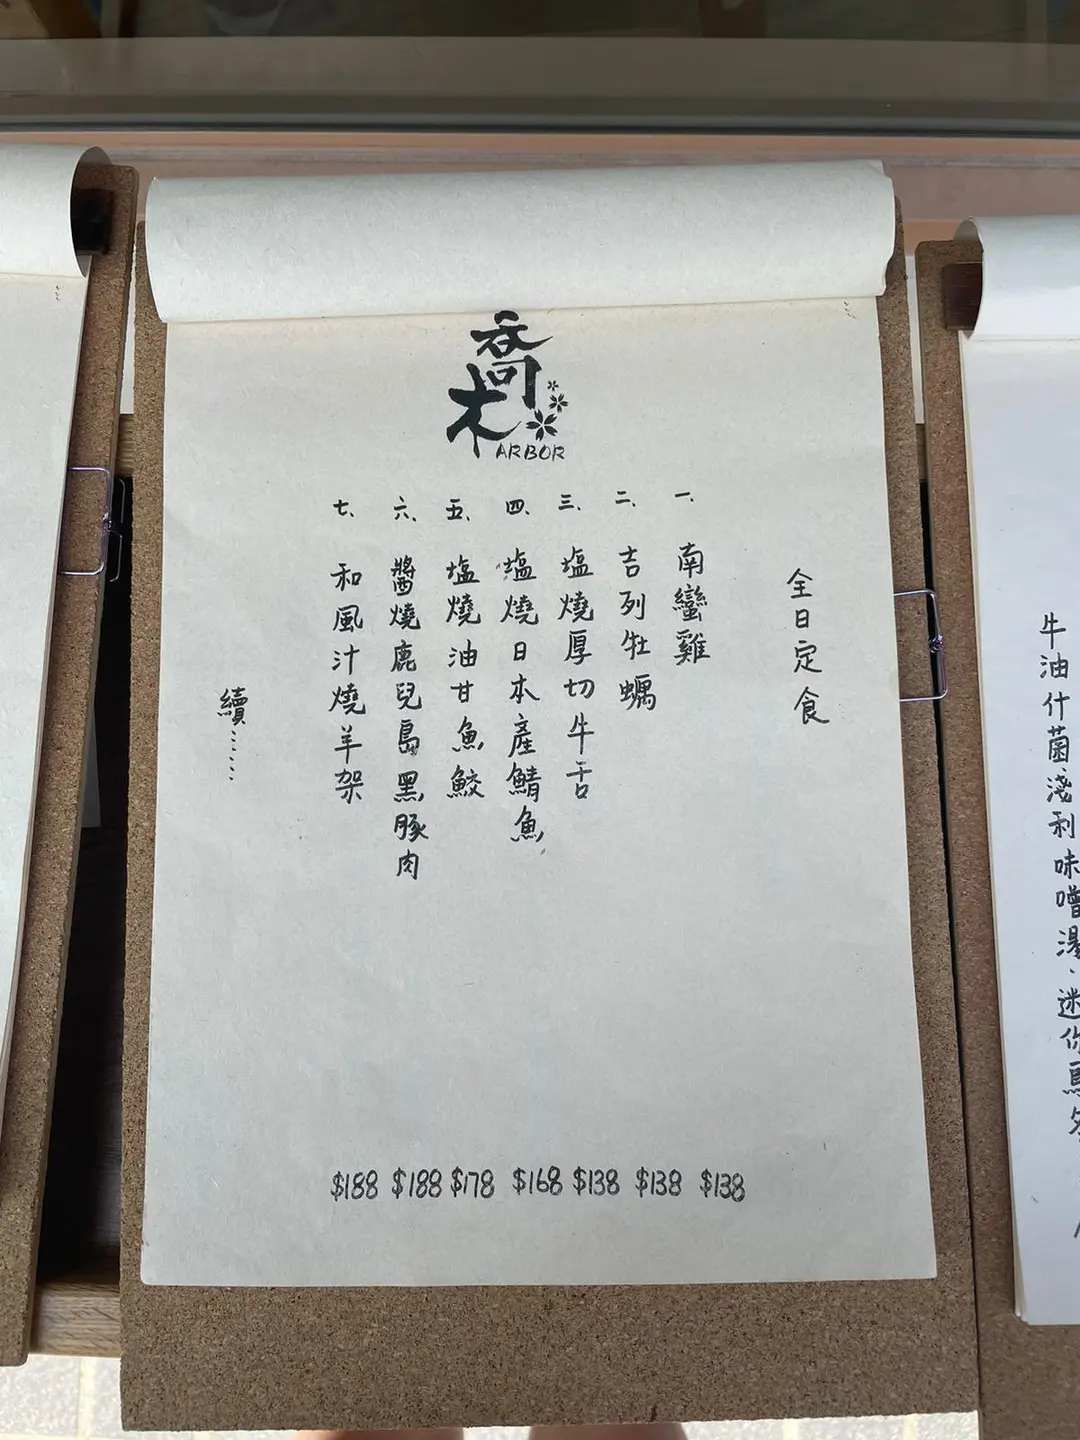 喬木
ARBOR
全日定食
一、南蠻雞 $138
二、吉列牡蠣 $138
三、塩燒厚切牛舌 $138
四、塩燒日本產鯖魚 $168
五、塩燒油甘魚鮫 $178
六、醬燒鹿兒島黑豚肉 $188
七、和風汁燒羊架 $188
續……
牛油什菌、淺利味噌湯、迷你